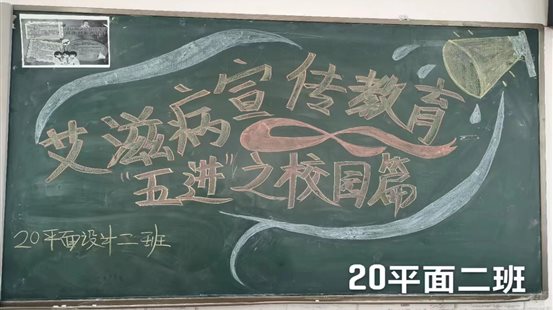 艾滋病宣传教育
"五进"之校园篇
20平面设计二班
20平面二班